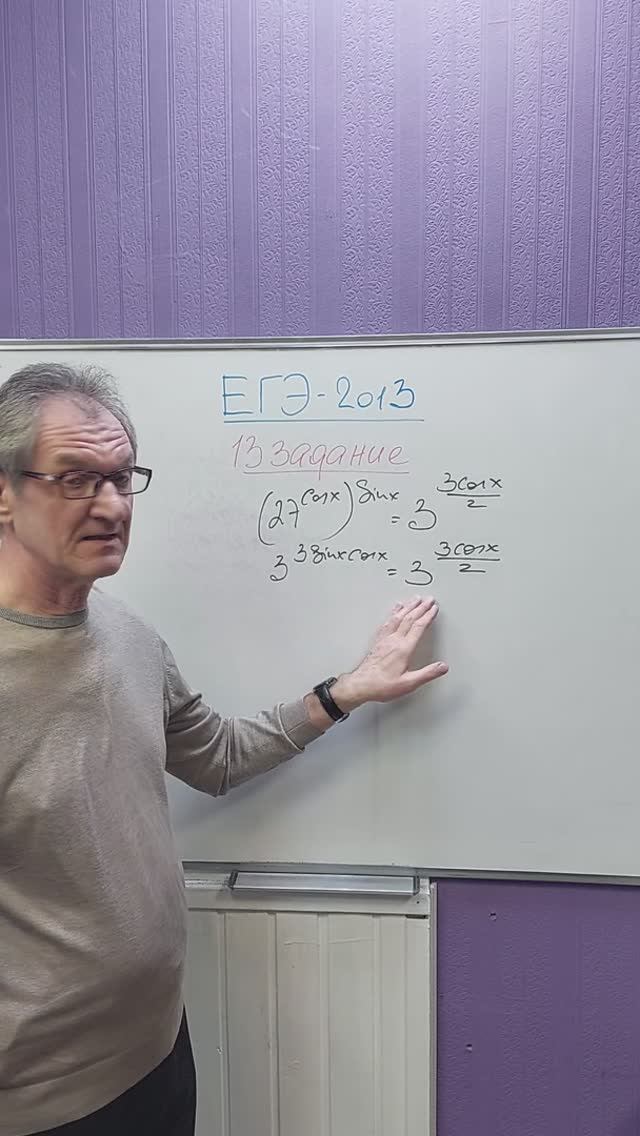 ЕГЭ-2013
13 задание
(27^cosx)^sinx = 3^(3cosx/2)
3^3sinxcosx = 3^(3cosx/2)